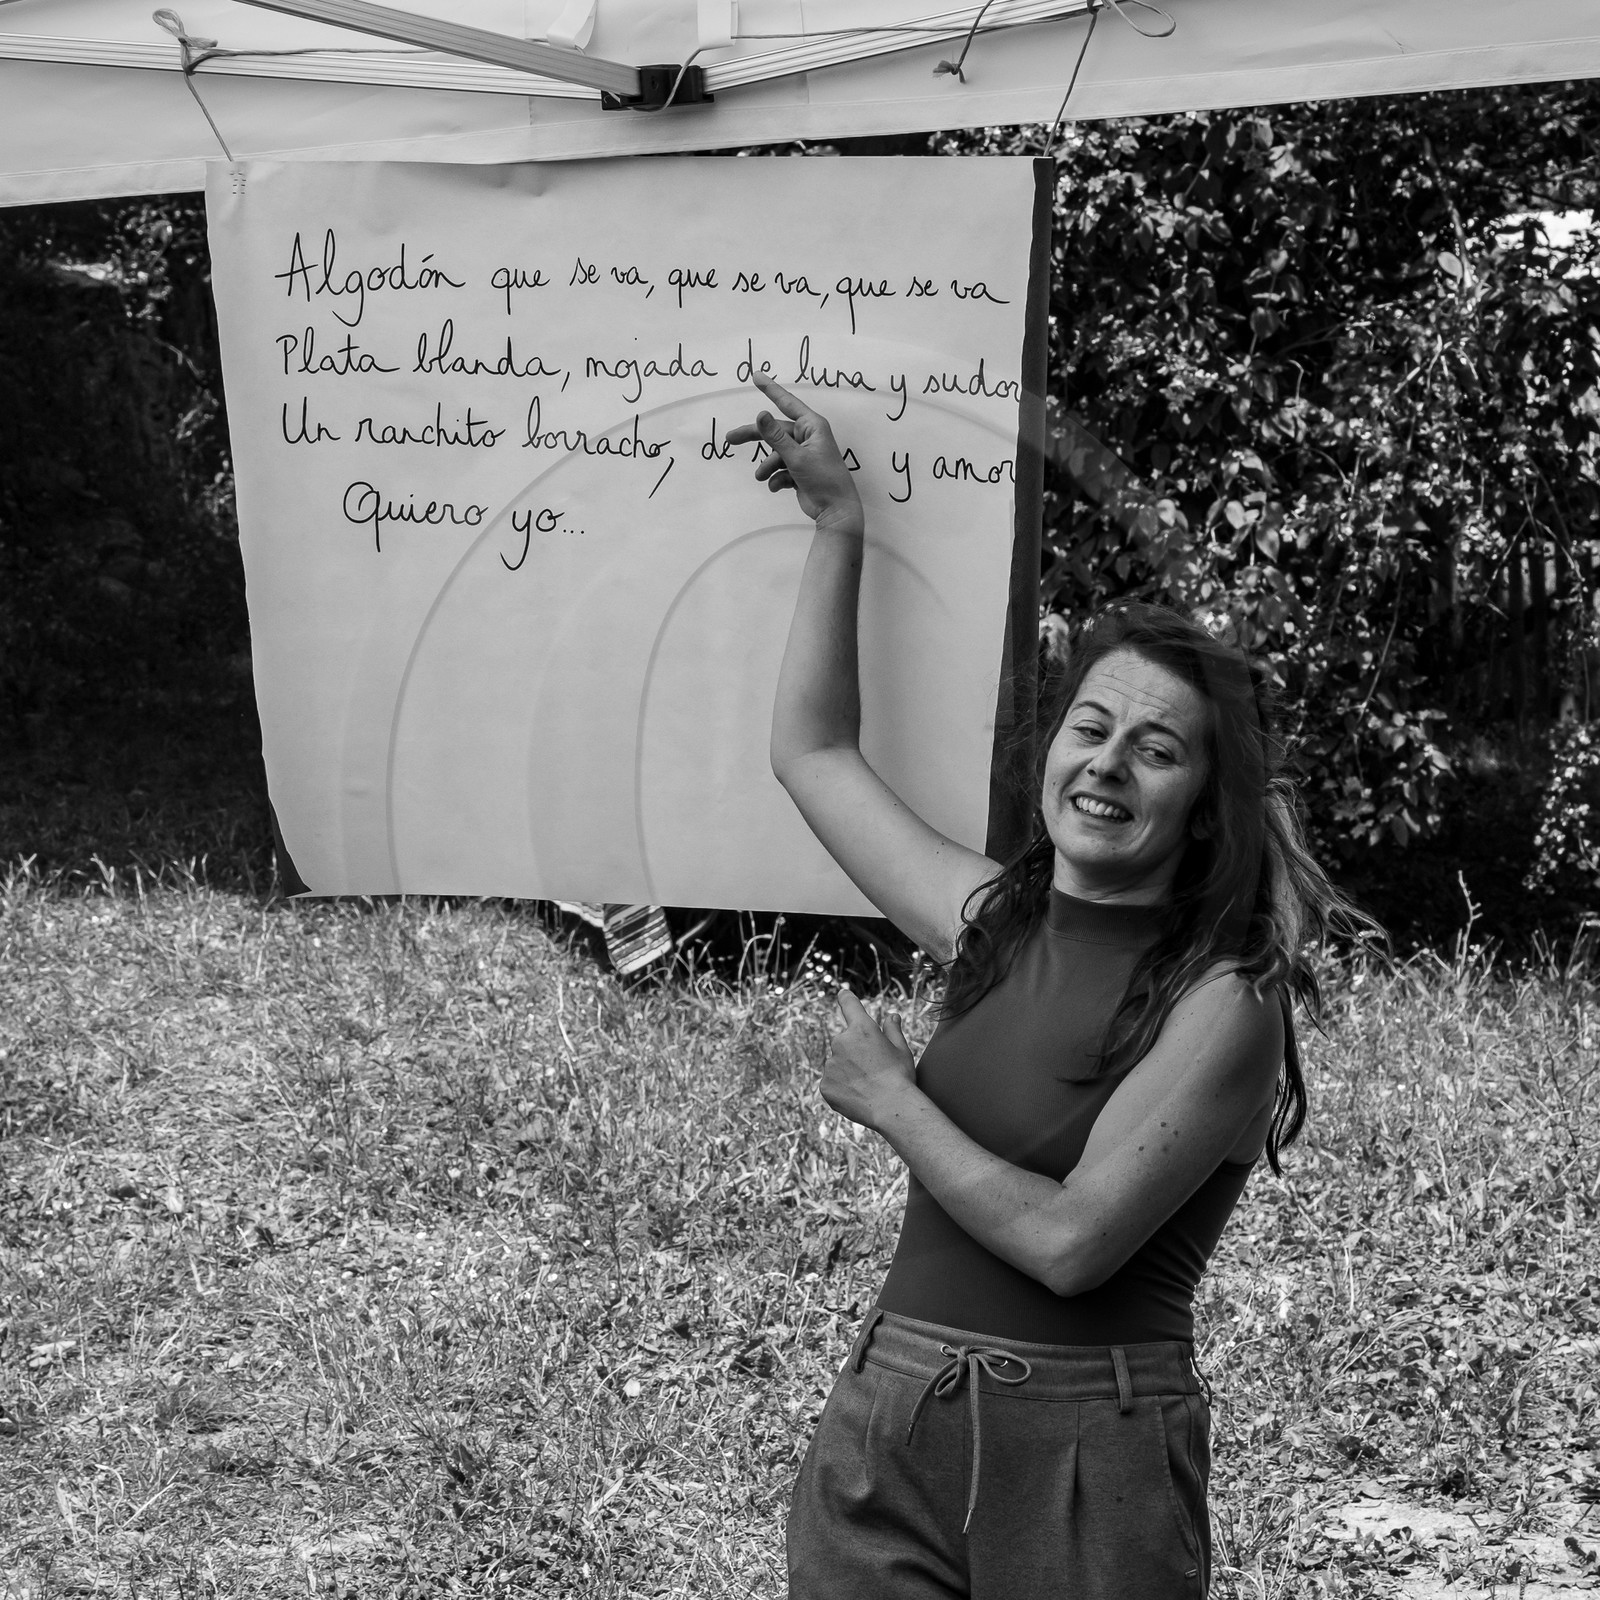 Algodón que se va, que se va, que se va
Plata blanda, mojada de luna y sudor
Un ranchito borracho, de y amor
Quiero yo...